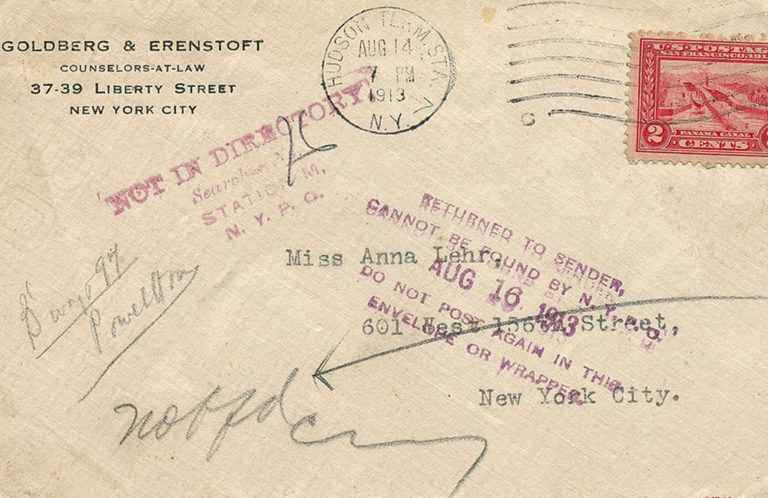 GOLDBERG & ERENSTOFT
COUNSELORS-AT-LAW
37-39 LIBERTY STREET
NEW YORK CITY
HUDSON TERM. STA.
AUG 14
7 PM
1913
N.Y.
U.S. POSTAGE
SAN FRANCISCO, 1915
PANAMA CANAL
2 CENTS
NOT IN DIRECTORY
STATION M,
N. Y. P. O.
RETURNED TO SENDER,
CANNOT BE FOUND BY N. Y. P. O.
AUG 16 1913
DO NOT POST AGAIN IN THIS
ENVELOPE OR WRAPPER.
Miss Anna Lehr,
601 West 156th Street,
New York City.